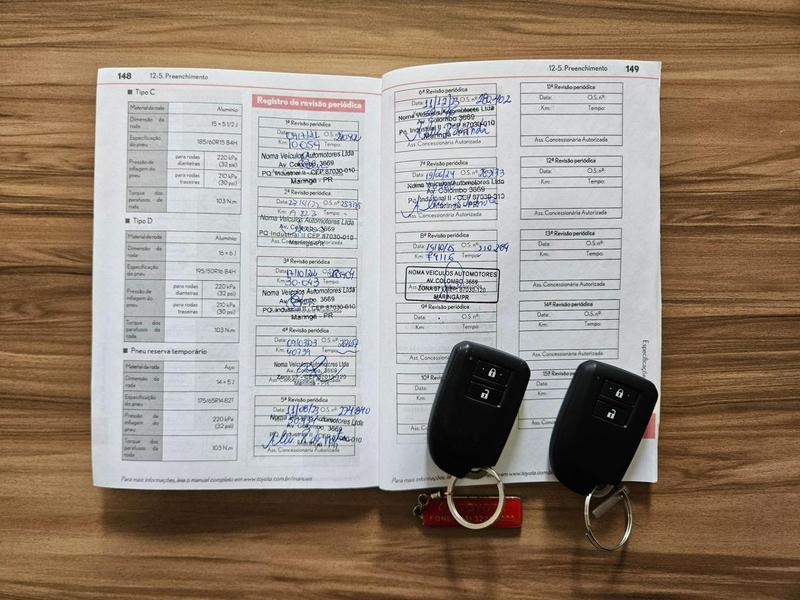 148
12-5. Preenchimento
■ Tipo C
Material da roda Alumínio
Dimensão da roda 15 × 5 1/2 J
Especificação do pneu 185/60R15 84H
Pressão de inflagem do pneu para rodas dianteiras 220 kPa (32 psi)
para rodas traseiras 210 kPa (30 psi)
Torque dos parafusos de roda 103 N.m
■ Tipo D
Material da roda Alumínio
Dimensão da roda 16 × 6 J
Especificação do pneu 195/50R16 84H
Pressão de inflagem do pneu para rodas dianteiras 220 kPa (32 psi)
para rodas traseiras 210 kPa (30 psi)
Torque dos parafusos de roda 103 N.m
■ Pneu reserva temporário
Material da roda Aço
Dimensão da roda 14 × 5 J
Especificação do pneu 175/65R14 82T
Pressão de inflagem do pneu 220 kPa (32 psi)
Torque dos parafusos de roda 103 N.m
Registro de revisão periódica
1ª Revisão periódica
Data: O.S. nº:
Km: 10059 Tempo:
Noma Veículos Automotores Ltda
Av. Colombo, 3669
PQ. Industrial II - CEP 87030-010
Maringá - PR
2ª Revisão periódica
Data: O.S. nº:
Km: Tempo:
Noma Veículos Automotores Ltda
Av. Colombo, 3669
PQ Industrial II - CEP 87030-010
Maringá-PR
3ª Revisão periódica
Data: 17/10/22 O.S. nº:
Km: 30.043 Tempo:
Noma Veículos Automotores Ltda
Av. Colombo, 3669
PQ. Industrial II - CEP 87030-010
Maringá - PR
4ª Revisão periódica
Data: O.S. nº:
Km: 40759 Tempo:
Noma Veículos Automotores Ltda
Maringá - PR
5ª Revisão periódica
Data: 11/08/23 O.S. nº: 274840
Km: Tempo:
Noma Veículos Automotores Ltda
Av. Colombo 3669
Ass. Concessionária Autorizada
Para mais informações, leia o manual completo em www.toyota.com.br/manuais
12-5. Preenchimento
149
6ª Revisão periódica
Data: 11/12/23 O.S. nº: 280402
Noma Veículos Automotores Ltda
Av. Colombo 3669
PQ. Industrial II - CEP 87030-010
Maringá - PR
Ass. Concessionária Autorizada
7ª Revisão periódica
Data: 19/06/24 O.S. nº:
Noma Veículos Automotores Ltda
Av Colombo 3669
PQ. Industrial II - CEP 87030-010
Ass. Concessionária Autorizada
8ª Revisão periódica
Data: O.S. nº: 310.269
Km: Tempo:
NOMA VEICULOS AUTOMOTORES
AV. COLOMBO, 3669
ZONA 07
MARINGÁ/PR
9ª Revisão periódica
Data: O.S. nº:
Km: Tempo:
Ass. Concessionária Autorizada
10ª
Data:
Km:
Ass.
11ª Revisão periódica
Data: O.S. nº:
Km: Tempo:
Ass. Concessionária Autorizada
12ª Revisão periódica
Data: O.S. nº:
Km: Tempo:
Ass. Concessionária Autorizada
13ª Revisão periódica
Data: O.S. nº:
Km: Tempo:
Ass. Concessionária Autorizada
14ª Revisão periódica
Data: O.S. nº:
Km: Tempo:
Ass. Concessionária Autorizada
15ª Revisão periódica
Para mais informações, www.toyota.com.br/manuais